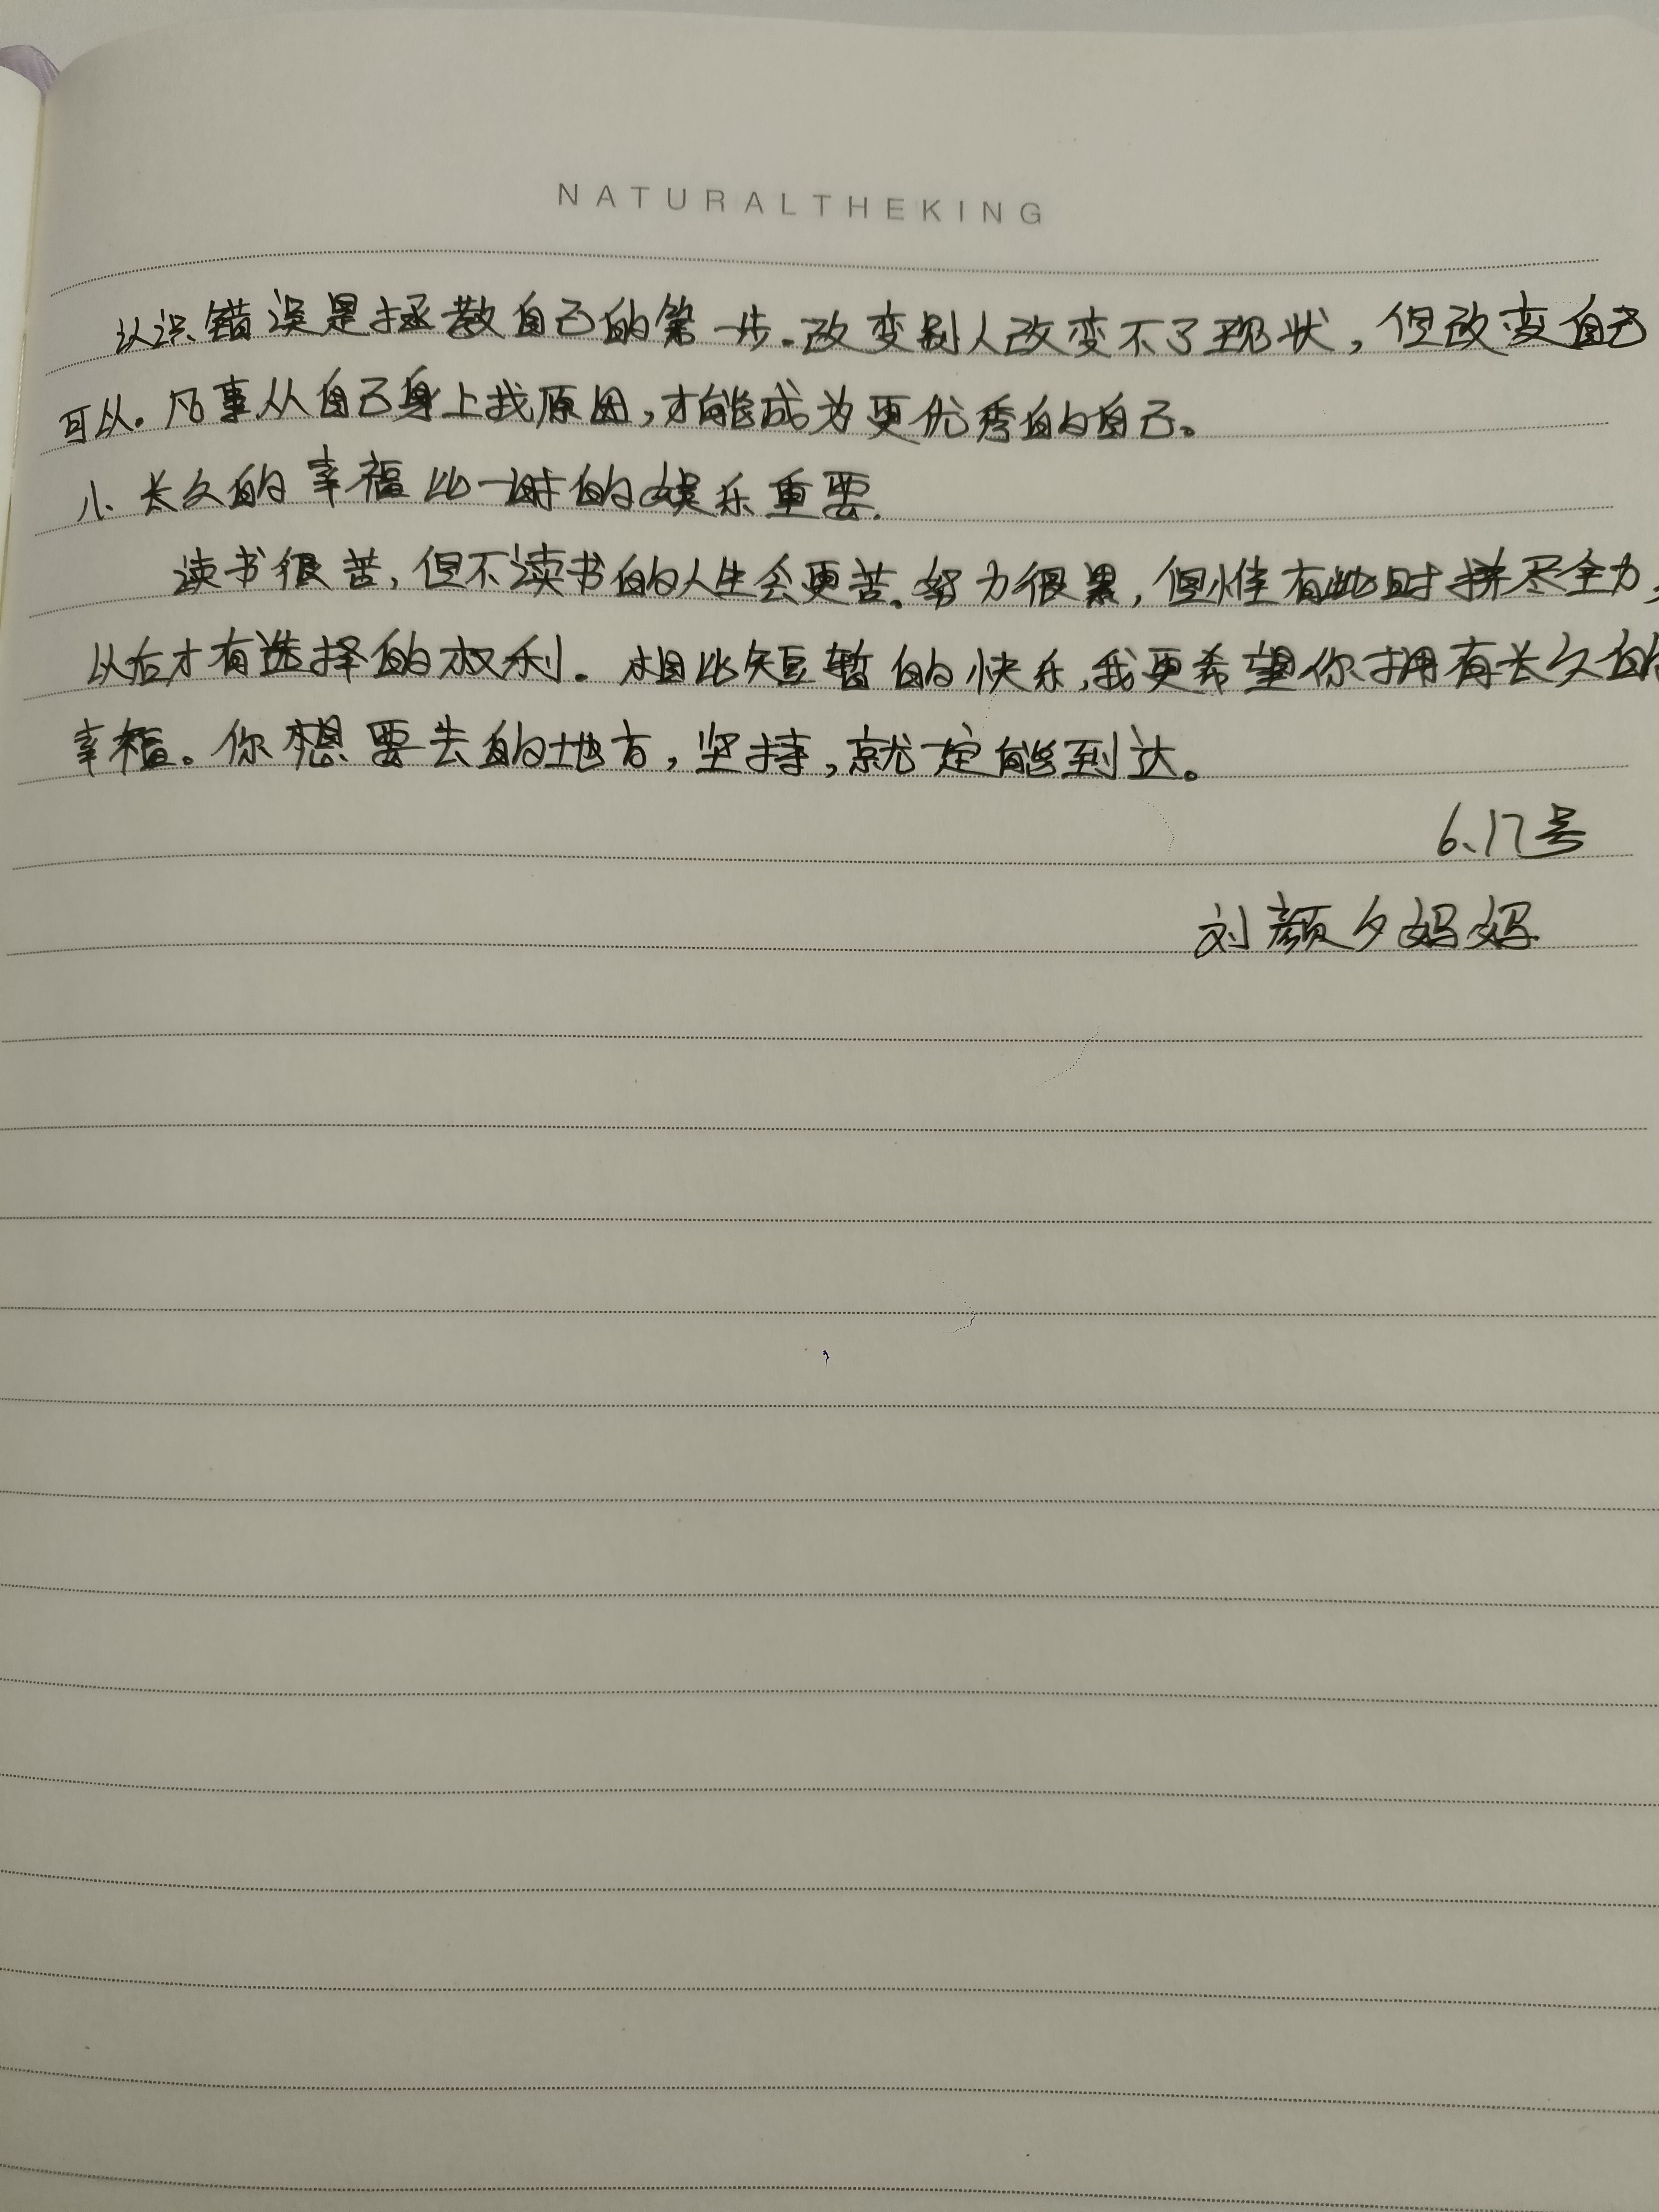 NATURALTHEKING
认识错误是拯救自己的第一步.改变别人改变不了现状,但改变自己
可以.凡事从自己身上找原因,才能成为更优秀的自己。
八、长久的幸福比一时的娱乐重要.
读书很苦,但不读书的人生会更苦.努力很累,但惟有此时拼尽全力,
以后才有选择的权利.相比短暂的快乐,我更希望你拥有长久的
幸福。你想要去的地方,坚持,就一定能到达。
6、17号
刘颜夕妈妈